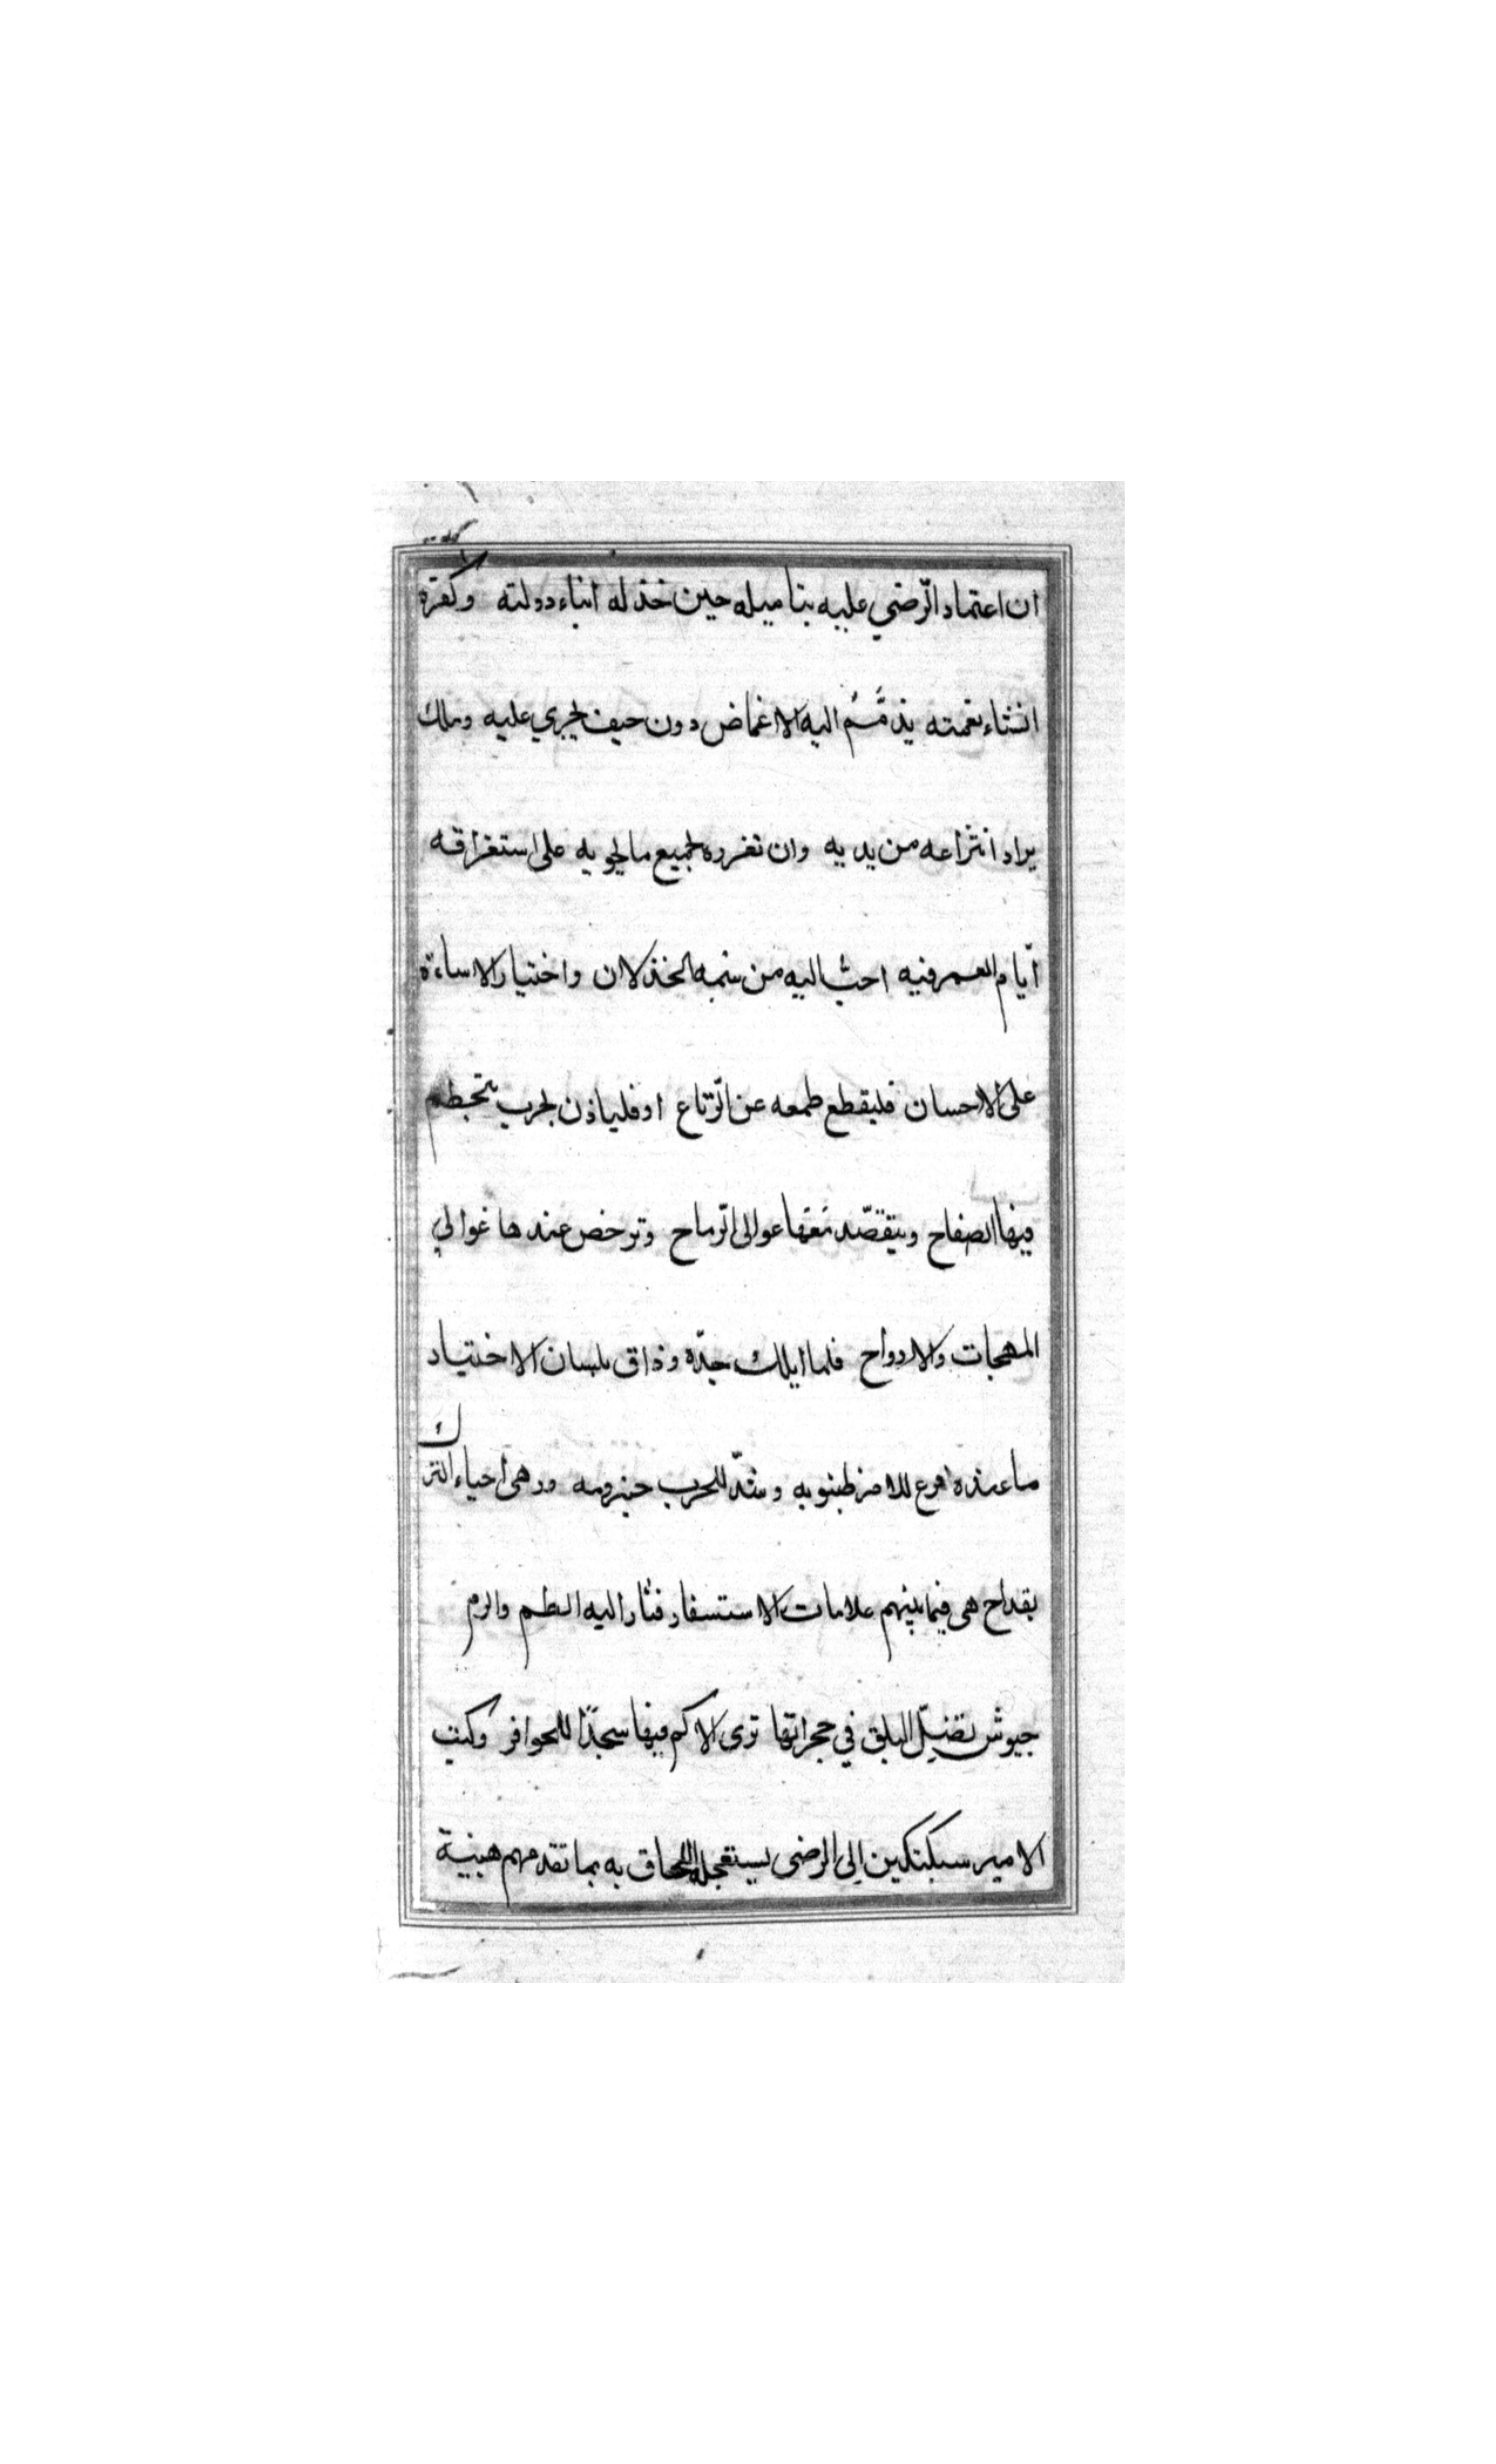 ان اعتماد الرّضي عليه بتاميله حين خذله ابناء دولته وكفره
انشاء نعمته يذمّم اليه الاغماض دون حيف يجري عليه وملك
يراد انتزاعه من يديه وان تفرده بجميع ما يحويه على استغراقه
ايّام العمر فيه احبّ اليه من سمة الخذلان واختيار الاساءة
على الاحسان فليقطع طمعه عن الرّتاع او فلياذن لحرب يتحطم
فيها الصفاح ويتقصّد معها عوالى الرّماح وترخص عندها غوالي
المهجات والارواح فلما ايلك جدّه وذاق بلسان الاختيار
ما عنده قرع للامر ظنبوبه وشدّ للحرب حيزومه ورهى احياء الترك
بقداح هى فيما بينهم علامات الاستنفار فثار اليه الطم والرم
جيوش تضلّ البلق في حجراتها ترى الاكم فيها سجدًا للحوافر وكتب
الامير سبكتكين الى الرضى يستعجله اللحاق به بما تقدمهم هيبة